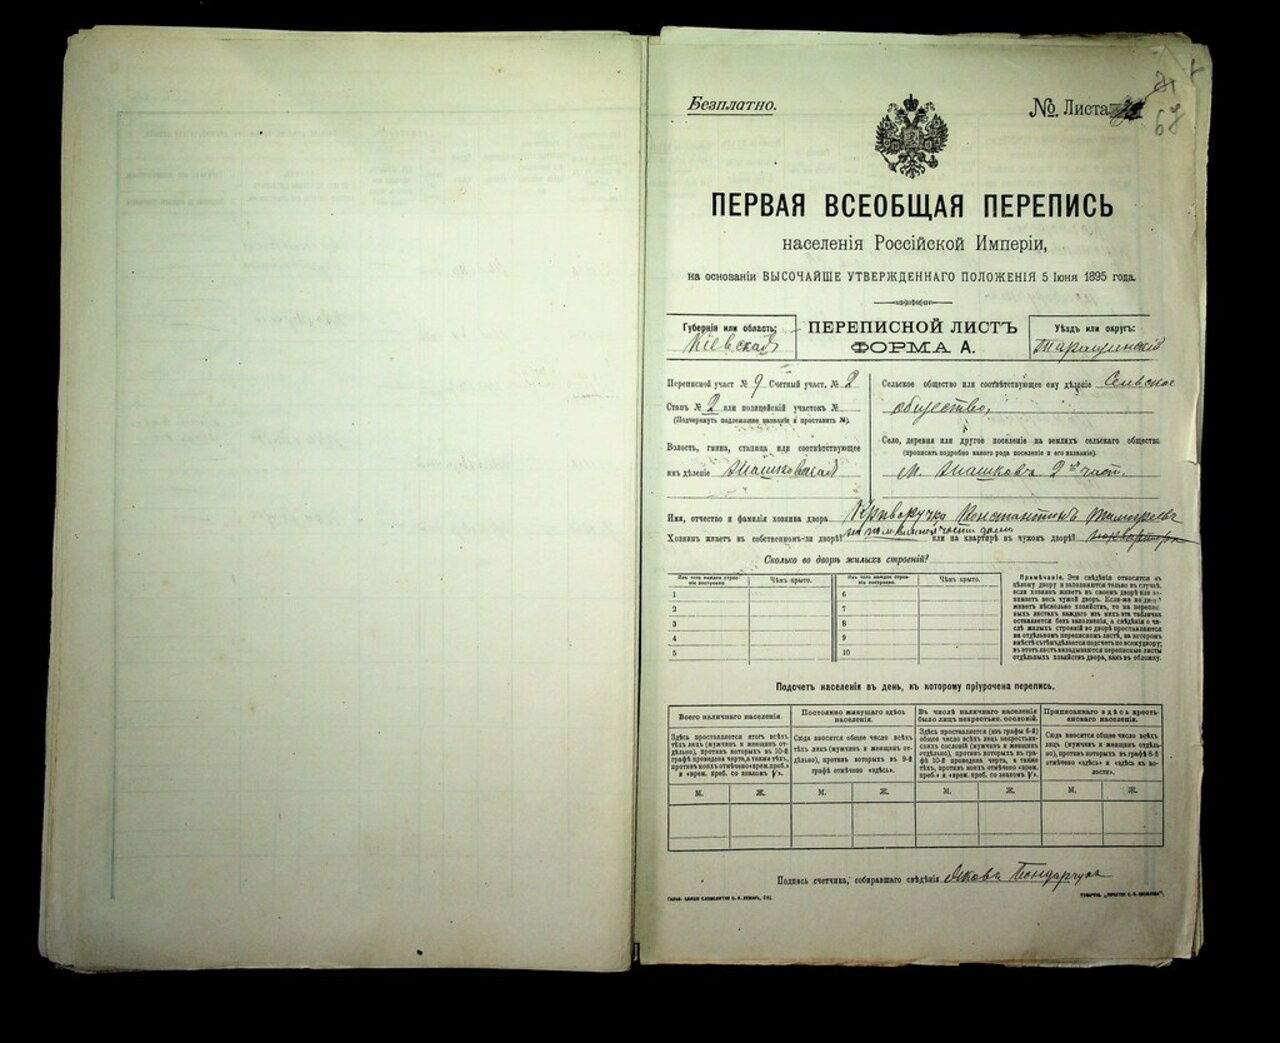 Безплатно.
№. Листа
67
ПЕРВАЯ ВСЕОБЩАЯ ПЕРЕПИСЬ
населенія Россійской Имперіи,
на основаніи ВЫСОЧАЙШЕ УТВЕРЖДЕННАГО ПОЛОЖЕНІЯ 5 Іюня 1895 года.
Губернія или область:
Кіевская
ПЕРЕПИСНОЙ ЛИСТЪ
ФОРМА А.
Уѣздъ или округъ:
Таращинскій
Переписной участ № 9 Счетный участ. № 2
Станъ № 2 или полицейскій участокъ №
(Подчеркнуть надлежащее названіе и проставить №).
Волость, гмина, станица или соотвѣтствующее
имъ дѣленіе
Сельское общество или соотвѣтствующее ему дѣленіе Сельское
общество,
Село, деревня или другое поселеніе на земляхъ сельскаго общества
(прописать подробно какого рода поселеніе и его названіе).
м. 2я част.
Имя, отчество и фамилія хозяина двора Криворучко Константинъ
Хозяинъ живетъ въ собственномъ-ли дворѣ? части дома или на квартирѣ въ чужомъ дворѣ?
Сколько во дворѣ жилыхъ строеній?
Изъ чего каждое строеніе построено. Чѣмъ крыто. Изъ чего каждое строеніе построено. Чѣмъ крыто.
1 6
2 7
3 8
4 9
5 10
Примѣчаніе. Эти свѣдѣнія относятся къ
цѣлому двору и заполняются только въ случаѣ,
если хозяинъ живетъ въ своемъ дворѣ или занимаетъ
весь чужой дворъ. Если-же во дворѣ
живетъ нѣсколько хозяйствъ, то на переписныхъ
листахъ каждаго изъ нихъ эта табличка
оставляется безъ заполненія, а свѣдѣнія о числѣ
жилыхъ строеній во дворѣ проставляются
на отдѣльномъ переписномъ листѣ, на которомъ
вмѣстѣ съ тѣмъ дѣлается подсчетъ по всему двору;
въ этотъ листъ вкладываются переписные листы
отдѣльныхъ хозяйствъ двора, какъ въ обложку.
Подсчетъ населенія въ день, къ которому пріурочена перепись.
Всего наличнаго населенія.
Здѣсь проставляется итогъ всѣхъ
тѣхъ лицъ (мужчинъ и женщинъ отдѣльно),
противъ которыхъ въ 10-й
графѣ проведена черта, а также тѣхъ,
противъ коихъ отмѣчено «врем. преб.»
и «врем. преб. со знакомъ V».
Постоянно живущаго здѣсь
населенія.
Сюда вносится общее число всѣхъ
тѣхъ лицъ (мужчинъ и женщинъ отдѣльно),
противъ которыхъ въ 9-й
графѣ отмѣчено «здѣсь».
Въ числѣ наличнаго населенія
было лицъ некрестьян. сословій.
Здѣсь проставляется (изъ графы 6-й)
общее число всѣхъ лицъ некрестьянскихъ
сословій (мужчинъ и женщинъ
отдѣльно), противъ которыхъ въ графѣ
10-й проведена черта, а также
тѣхъ, противъ коихъ отмѣчено «врем.
преб.» и «врем. преб. со знакомъ V».
Приписаннаго здѣсь крестьянскаго
населенія.
Сюда вносится общее число всѣхъ
лицъ (мужчинъ и женщинъ отдѣльно),
противъ которыхъ въ графѣ 8-й
отмѣчено «здѣсь» и «здѣсь въ волости».
М. Ж. М. Ж. М. Ж. М. Ж.
Подпись счетчика, собиравшаго свѣдѣнія Яковъ Бондарчукъ